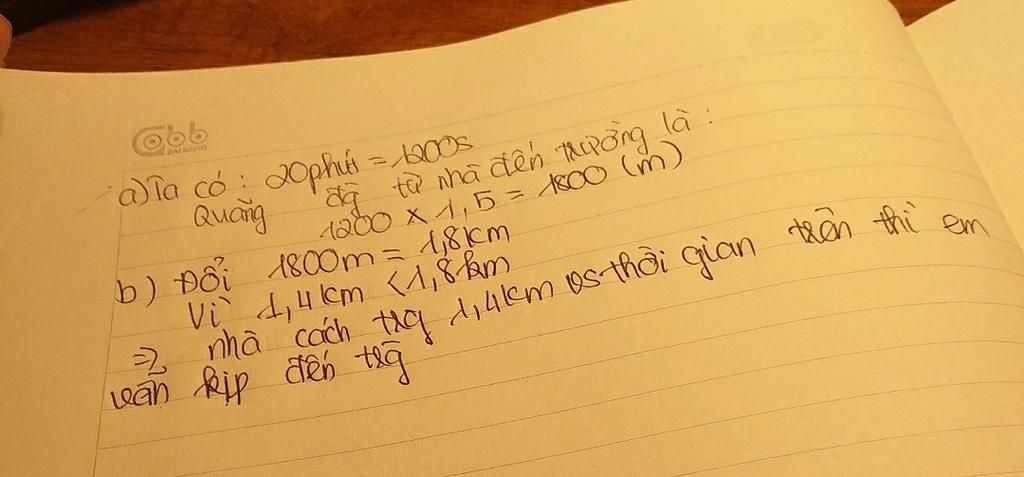 Cobb
HẢI BẰNG
a) Ta có : 20 phút = 1200s
Quãng đg từ nhà đến trường là :
1200 x 1,5 = 1800 (m)
b) Đổi 1800m = 1,8km
Vì 1,4km < 1,8km
=> nhà cách trg 1,4km vs thời gian trên thì em
vẫn kịp đến trg